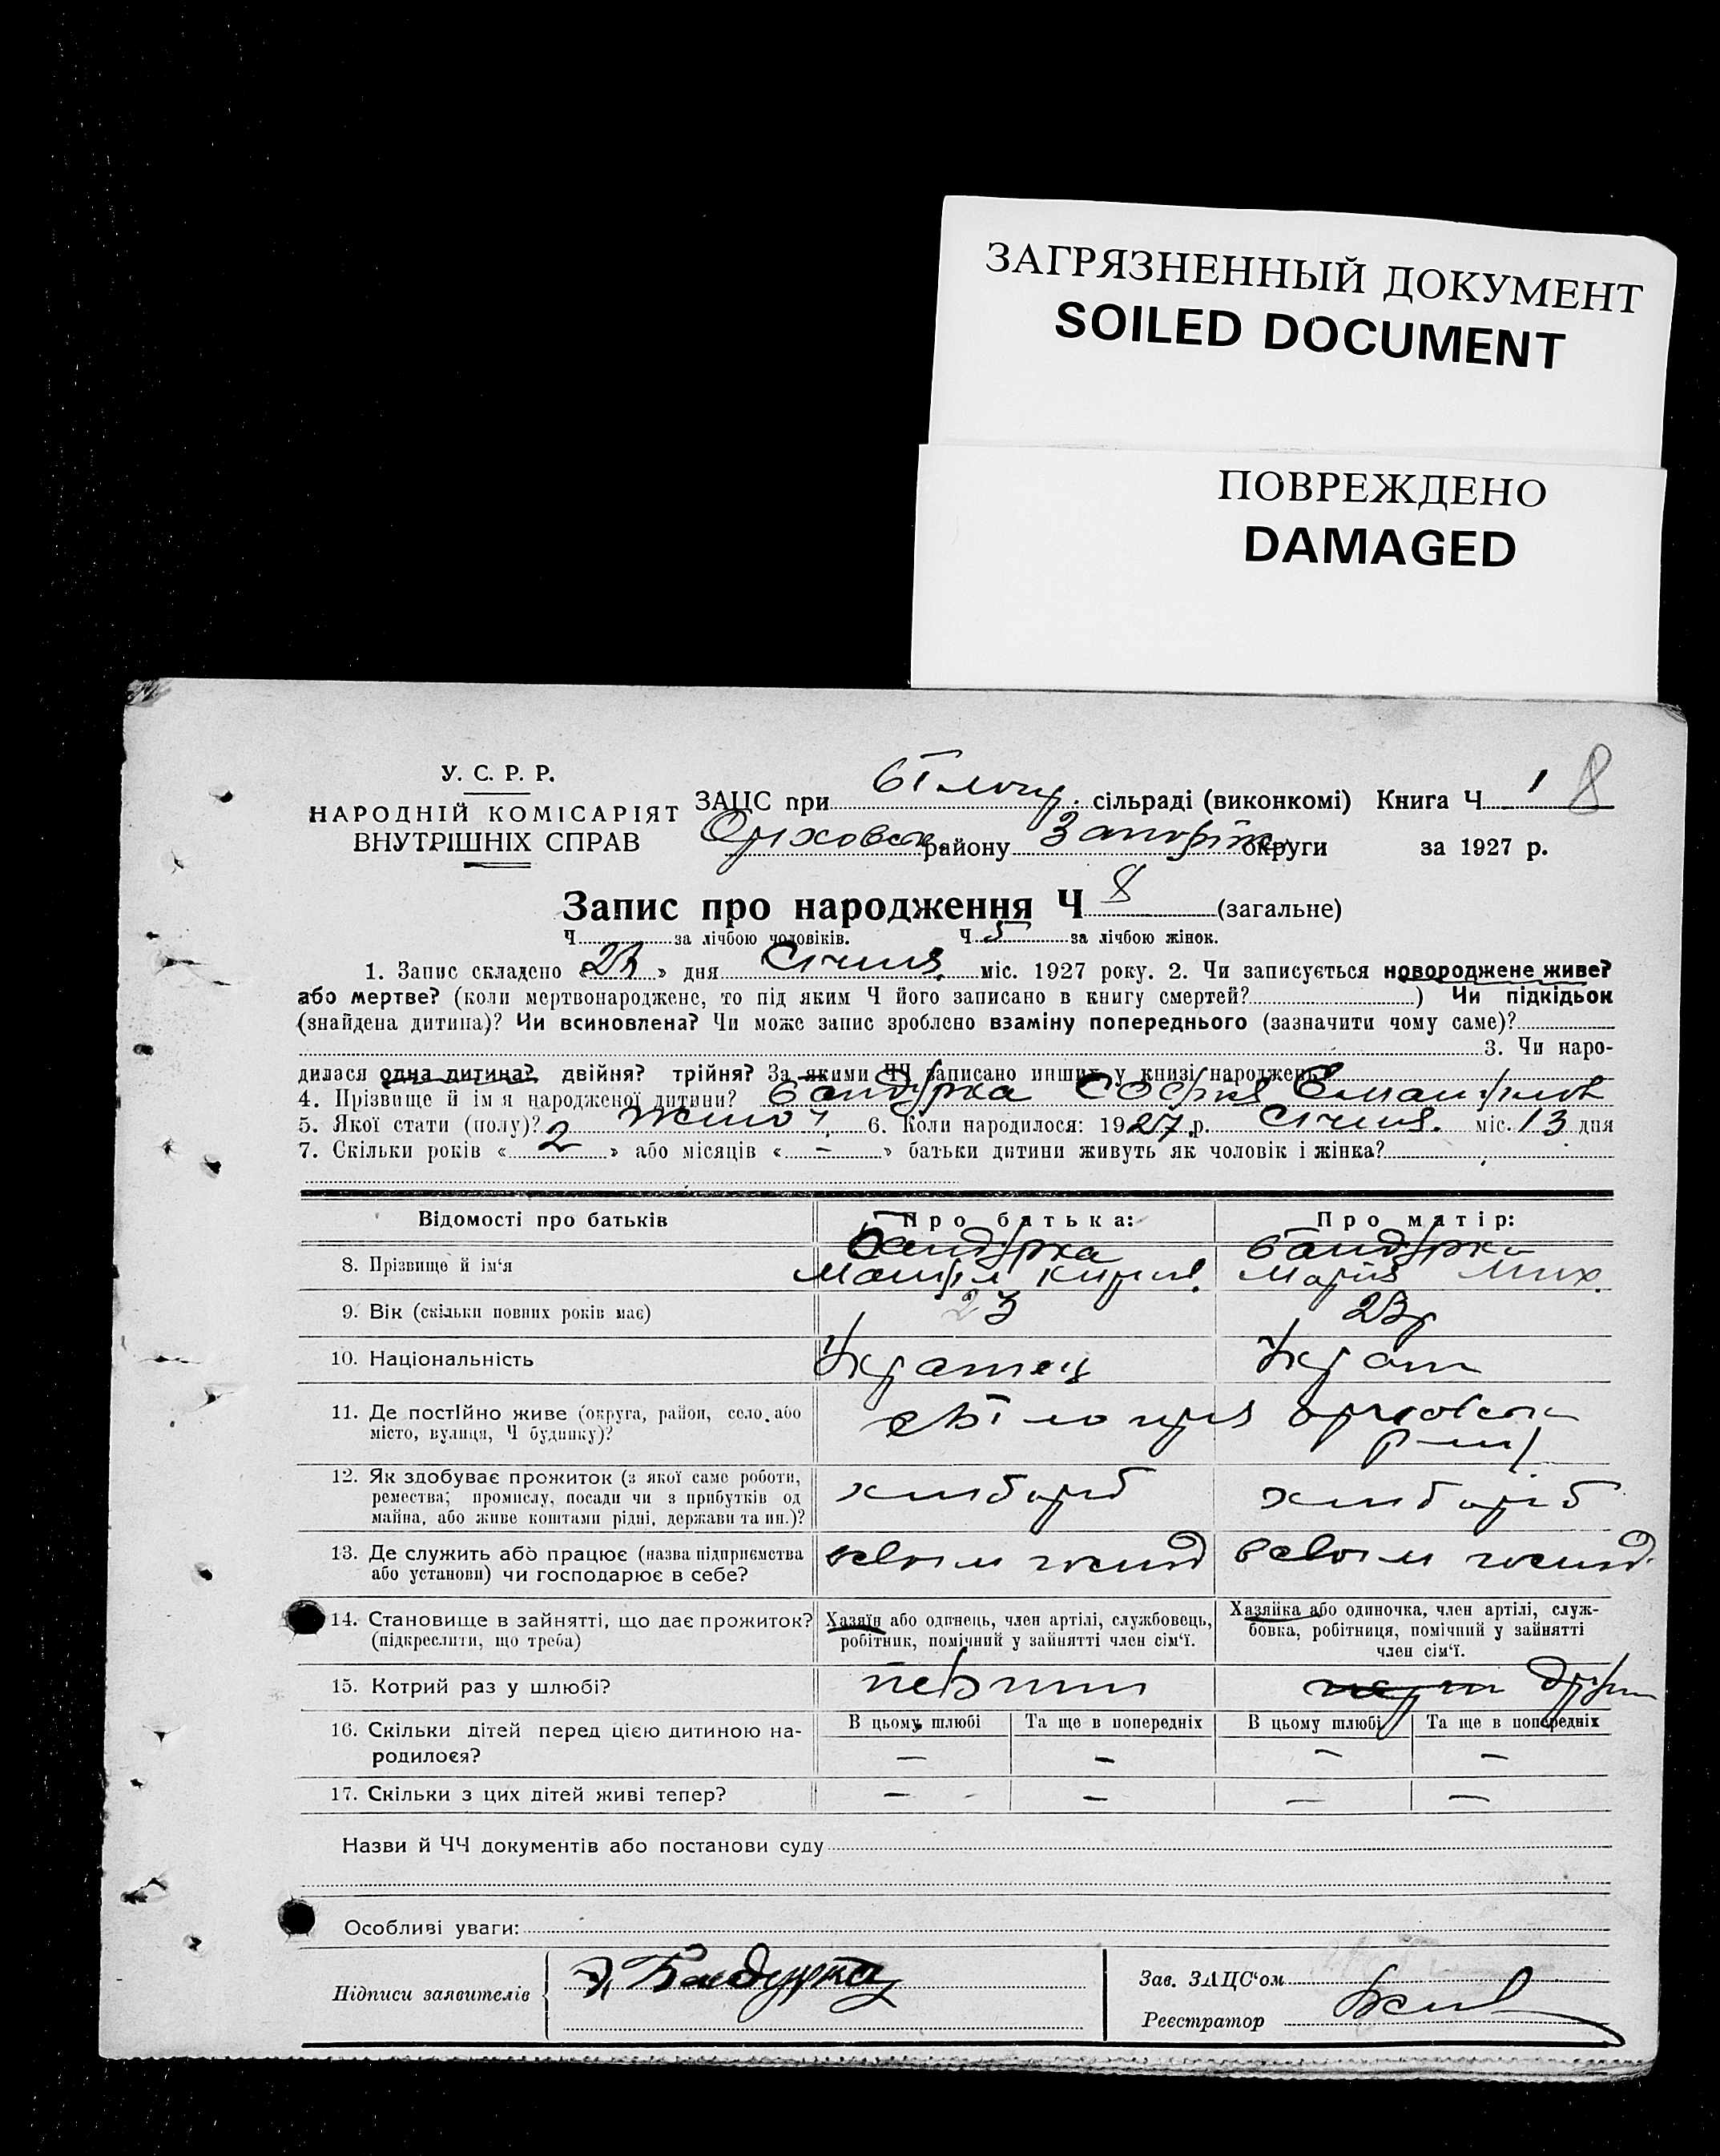 ЗАГРЯЗНЕННЫЙ ДОКУМЕНТ
SOILED DOCUMENT
ПОВРЕЖДЕНО
DAMAGED
У. С. Р. Р.
НАРОДНІЙ КОМІСАРІЯТ
ВНУТРІШНІХ СПРАВ
ЗАЦС при сільраді (виконкомі) Книга Ч 1 8
району округи за 1927 р.
Запис про народження Ч 8 (загальне)
Ч за лічбою чоловіків. Ч 5 за лічбою жінок.
1. Запис складено « » дня Січня міс. 1927 року. 2. Чи записується новороджене живе?
або мертве? (коли мертвонароджене, то під яким Ч його записано в книгу смертей? ) Чи підкідьок
(знайдена дитина)? Чи всиновлена? Чи може запис зроблено взаміну попереднього (зазначити чому саме)?
3. Чи наро-
дилася одна дитина? двійня? трійня? За якими ЧЧ записано инших у книзі народжень?
4. Прізвище й ім'я народженої дитини? Бандурка София
5. Якої стати (полу)? жіноч. 6. Коли народилося: 1927 р. Січня. міс. 13 дня
7. Скільки років « 2 » або місяців « – » батьки дитини живуть як чоловік і жінка?
Відомості про батьків Про батька: Про матір:
Бандурка Бандурка
8. Прізвище й ім'я Кирил. Мария Мих.
9. Вік (скільки повних років має) 23 23р
10. Національність Українець Україн
11. Де постійно живе (округа, район, село, або
місто, вулиця, Ч будинку)?
12. Як здобуває прожиток (з якої саме роботи,
ремества, промислу, посади чи з прибутків од
майна, або живе коштами рідні, держави та ин.)?
хлибориб хлибориб
13. Де служить або працює (назва підприємства
або установи) чи господарює в себе?
в своїм господ в своїм господ.
14. Становище в зайнятті, що дає прожиток?
(підкреслити, що треба)
Хазяїн або одинець, член артілі, службовець,
робітник, помічний у зайнятті член сім'ї.
Хазяйка або одиночка, член артілі, служ-
бовка, робітниця, помічний у зайнятті
член сім'ї.
15. Котрий раз у шлюбі?
16. Скільки дітей перед цією дитиною на-
родилося?
В цьому шлюбі Та ще в попередніх В цьому шлюбі Та ще в попередніх
– – – –
17. Скільки з цих дітей живі тепер? – – – –
Назви й ЧЧ документів або постанови суду
Особливі уваги:
Підписи заявителів Бандурка
Зав. ЗАЦС'ом
Реєстратор